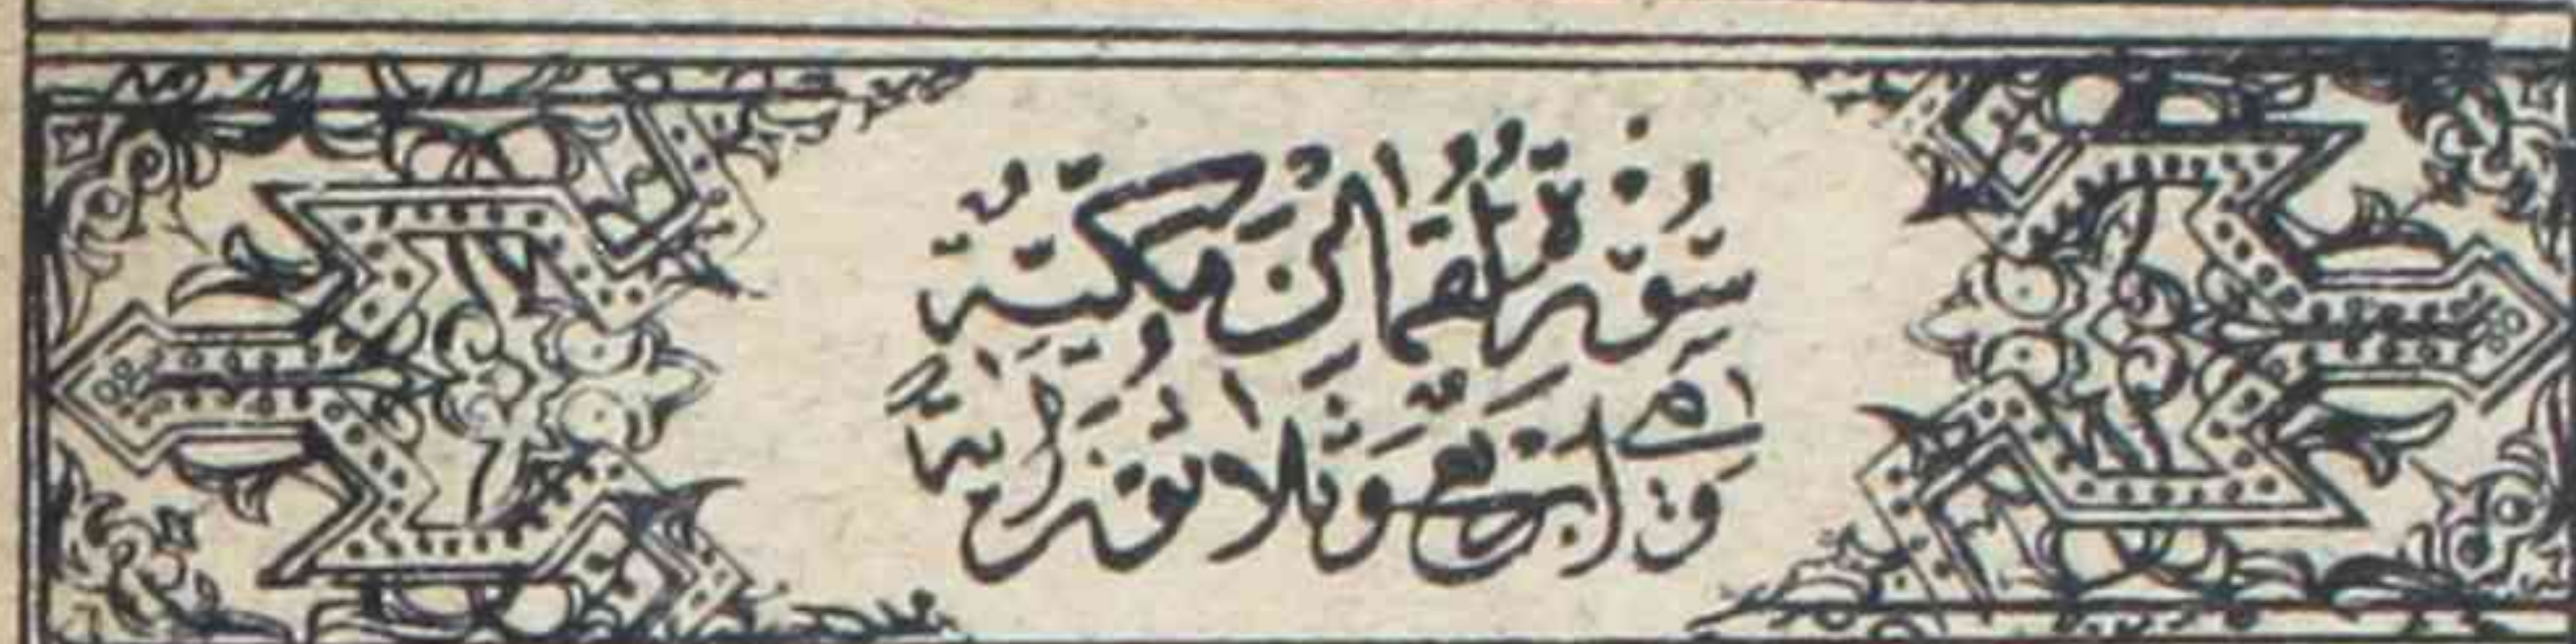 سُوْرَةُ لُقْمَانَ مَكِّيَّةٌ
وَهِيَ اَرْبَعٌ وَثَلَاثُوْنَ اٰيَةً